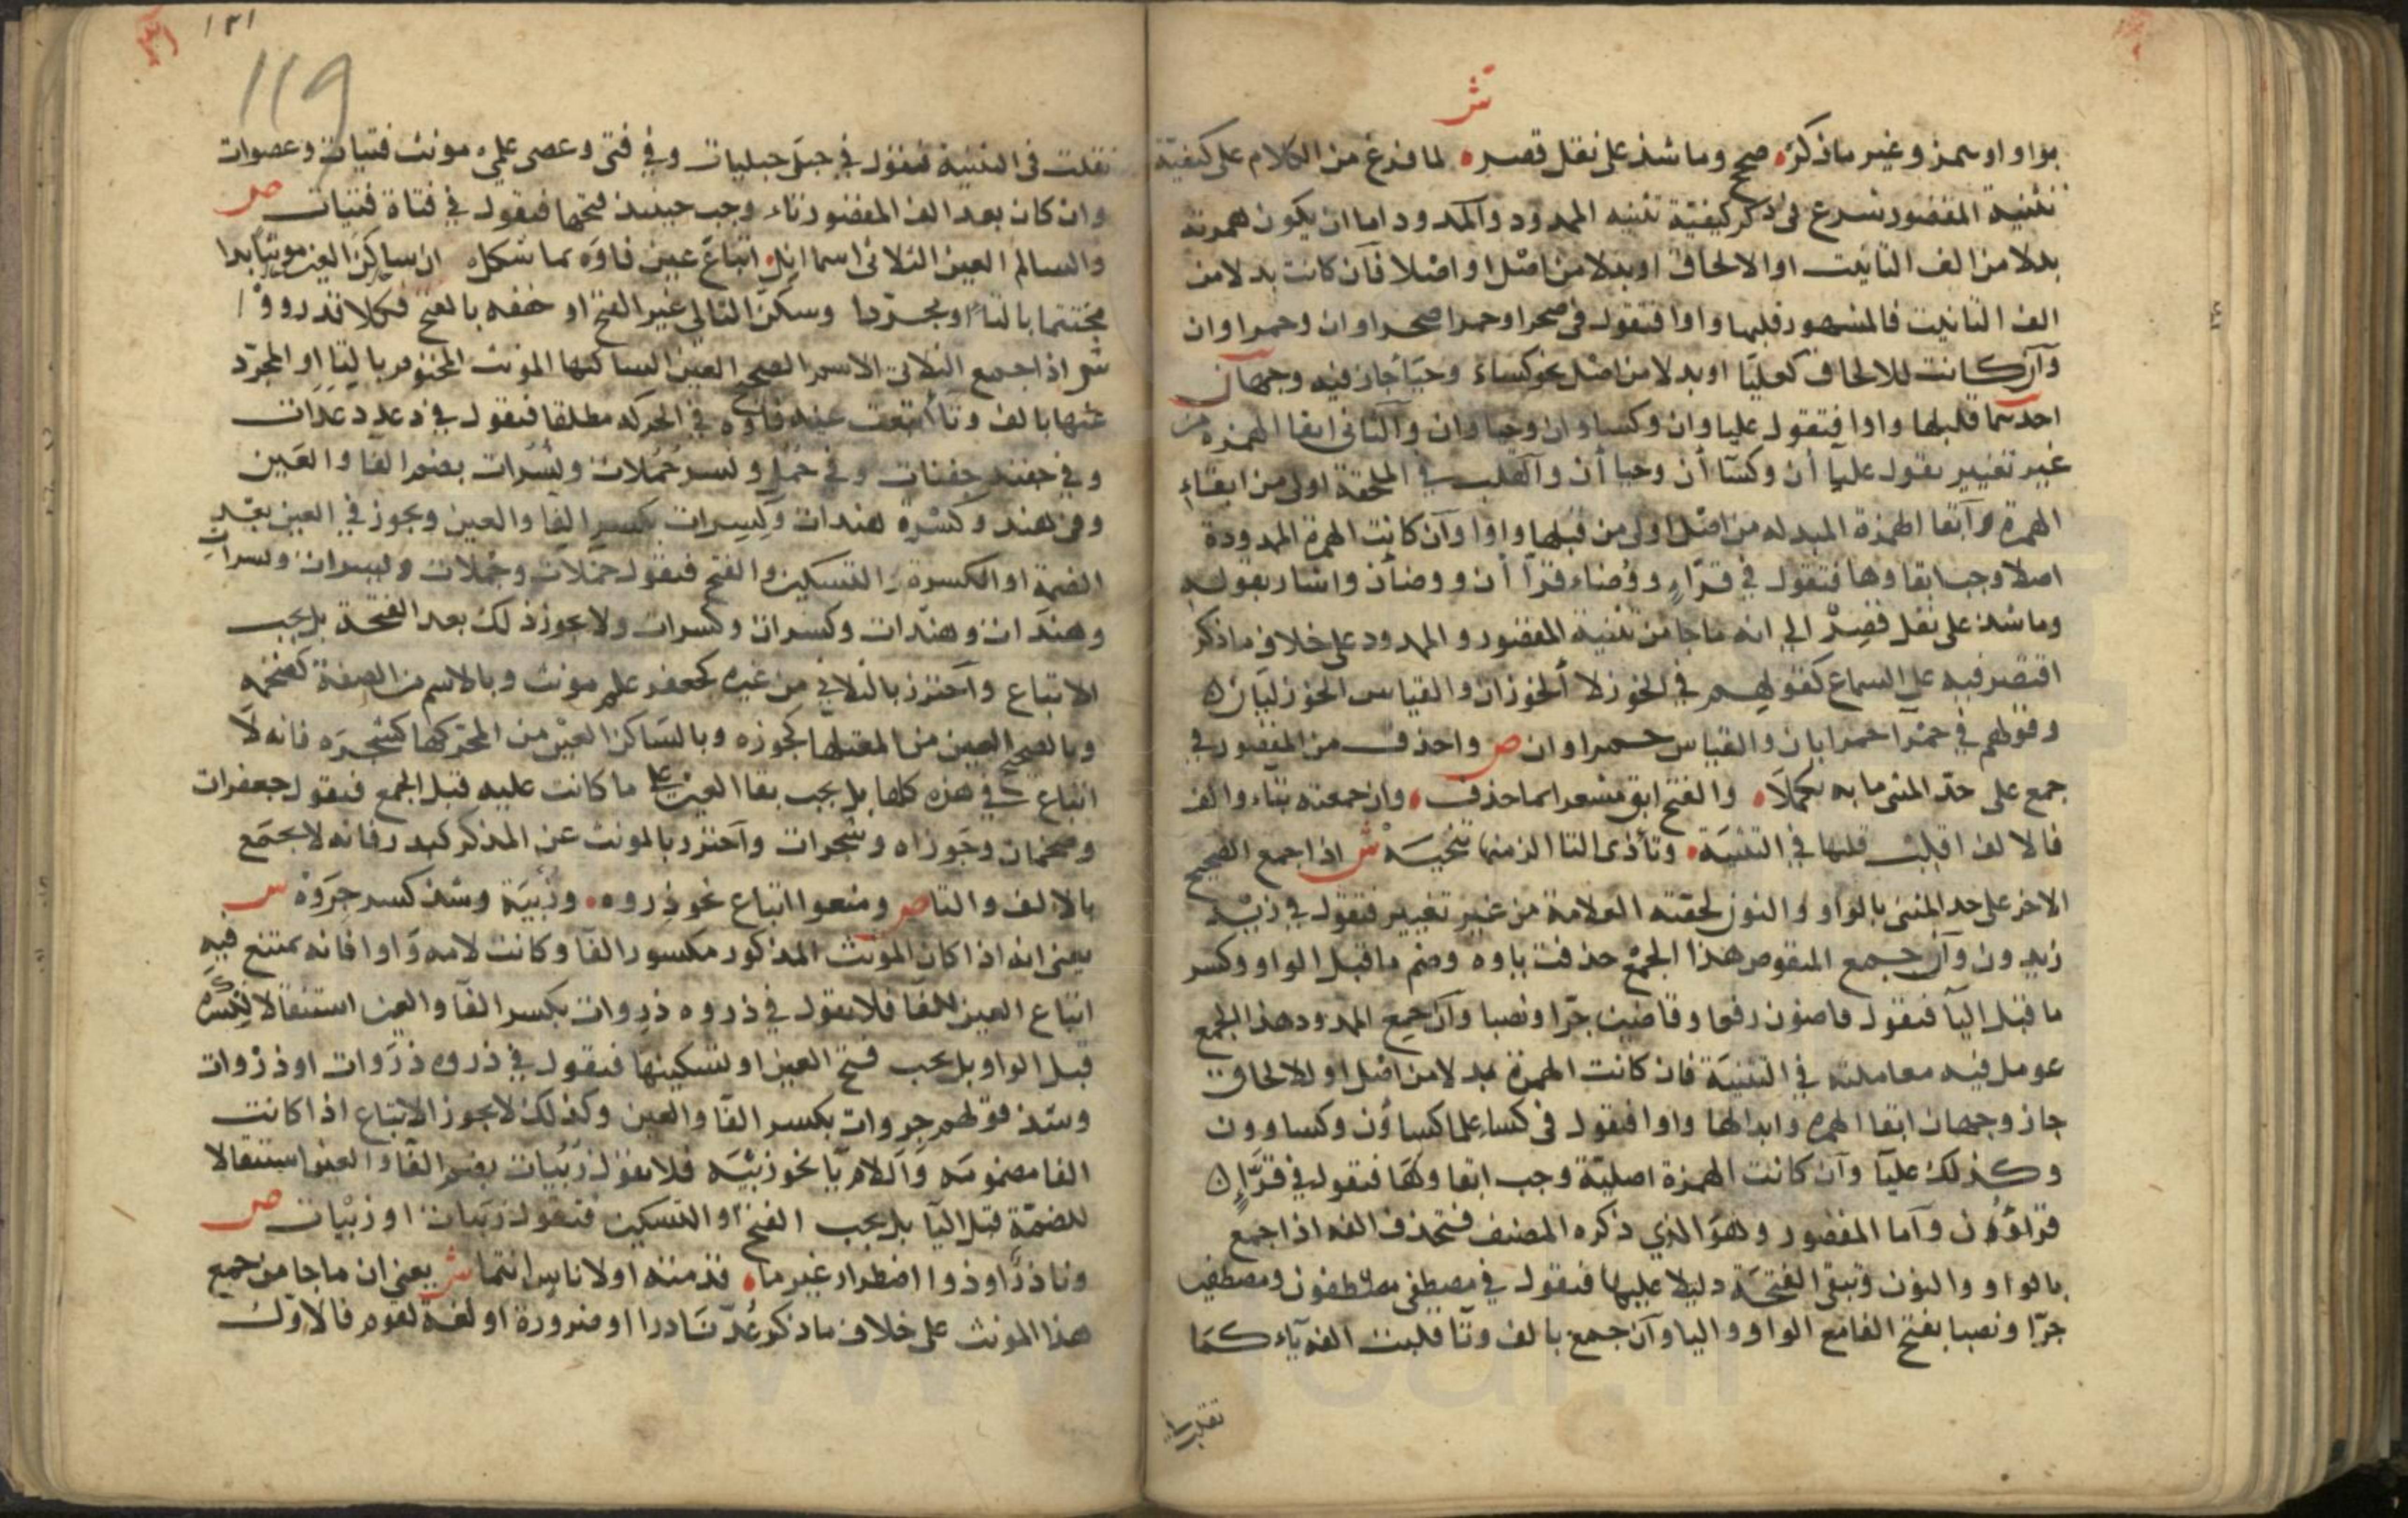 ش
بواو او همز وغير ما ذكره صحح وما شذ على نقل قصره لما فرغ من الكلام على كيفية
تثنية المقصور شرع في ذكر كيفية تثنيه الممدود والممدود اما ان يكون همزته
بدلا من الف التأنيث او الالحاق او بدلا من اصل او اصلا فان كانت بدلا من
الف التانيث فالمشهور قلبها واوا فتقول في صحرا وحمرا صحراوان وحمراوان
وان كانت للالحاق كعلبا او بدلا من اصل نحو كساء وحيا جاز فيه وجهان
احدهما قلبها واوا فتقول علباوان وكساوان وحياوان والثاني ابقا الهمزة من
غير تغيير تقول علبا أن وكسا أن وحيا أن والقلب في الملحقة اولى من ابقاء
الهمزة وابقا الهمزة المبدله من اصل اولى من قبلها واوا وان كانت الهمزة الممدودة
اصلا وجب ابقاوها فتقول في قراء ووضاء قرا أن ووضأن واشار بقوله
وما شذ على نقل قصر الى انه ما جا من تثنية المقصور و الممدود على خلاف ما ذكر
اقتصر فيه على السماع كقولهم في الخوزلا الخوزلان والقياس الخوزليان
وقولهم في حمرا حمرايان والقياس حمراوان ص واحذف من المقصور في
جمع على حد المثنى ما به تكملا والفتح ابق مشعرا بما حذف وان جمعته بتاء والف
فالالف اقلب قلبها في التثنية وتاء ذي التا الزمن تنحيه ش اذا جمع الصحيح
الاخر على حد المثنى بالواو والنون لحقته العلامة من غير تغيير فتقول في زيد
زيدون وان جمع المنقوص هذا الجمع حذفت ياوه وضم ما قبل الواو وكسر
ما قبل اليا فتقول قاضون رفعا وقاضين جرا ونصبا وان جمع الممدود هذا الجمع
عومل فيه معاملته في التثنية فان كانت الهمزة بدلا من اصل او للالحاق
جاز وجهان ابقا الهمزه وابدالها واوا فيقول في كساء علما كساؤن وكساوون
وكذلك علبا وان كانت الهمزة اصلية وجب ابقاوها فتقول في قراء
قراؤون واما المقصور وهو الذي ذكره المصنف فتحذف الفه اذا جمع
بالواو والنون وتبقى الفتحة دليلا عليها فتقول في مصطفى مصطفون ومصطفين
جرا ونصبا بفتح الفا مع الواو واليا وان جمع بالف وتا قلبت الفه ياء كما
تقلب في
١٢١
119
تقلت في التثنية فتقول في حبلى حبليات وفي فتى وعصى علمي مونث فتيات وعصوات
وان كان بعد الف المقصور تاء وجب حينئذ فتحها فيقول في فتاة فتيات ص
والسالم العين الثلاثي اسما انل اتباع عين فاوه بما شكل ان ساكن العين مونثا بدا
مختتما بالتا او مجردا وسكن التالي غير الفتح او خففه بالفتح فكلا قد رووا
ش اذا جمع الثلاثي الاسم الصحيح العين الساكنها المونث المختوم بالتا او المجرد
عنها بالف وتا اتبعت عينه فاوه في الحركه مطلقا فيقول في دعد دعدات
وفي جفنه جفنات وفي جمل وبسر جملات وبسرات بضم الفا والعين
وفي هند وكسرة هندات وكسرات بكسر الفا والعين ويجوز في العين بعد
الضمة او الكسرة التسكين والفتح فيقول جملات وجملات وبسرات وبسرات
وهندات وهندات وكسرات وكسرات ولا يجوز ذلك بعد الفتحة بل يجب
الاتباع واحترز بالثلاثي من غيره كجعفر علم مونث وبالاسم من الصفة كضخمه
وبالصحيح العين من المعتلها كجوزه وبالساكن العين من المحركها كشجره فانه لا
اتباع في هذه كلها بل يجب بقا العين على ما كانت عليه قبل الجمع فيقول جعفرات
وضخمات وجوزاه وشجرات واحترز بالمونث عن المذكر كبدر فانه لا يجمع
بالالف والتا ص ومنعوا اتباع نحو ذروه وزبية وشذ كسر جروه ش
يعني انه اذا كان المونث المذكور مكسور الفا وكانت لامه واوا فانه يمتنع فيه
اتباع العين للفا فلا يقول في ذروه ذروات بكسر الفا والعين استثقالا للكسره
قبل الواو بل يجب فتح العين او تسكينها فيقول في ذروه ذروات او ذروات
وشذ قولهم جروات بكسر الفا والعين وكذلك لا يجوز الاتباع اذا كانت
الفا مضمومه واللام يا نحو زبيه فلا يقول زبيات بضم الفا والعين استثقالا
للضمة قبل اليا بل يجب الفتح او التسكين فتقول زبيات او زبيات ص
ونادر او ذوا اضطرار غير ما قدمته او لاناس انتما ش يعني ان ما جا من جمع
هذا المونث على خلاف ما ذكر عد نادرا او ضرورة او لغة لقوم فالاول